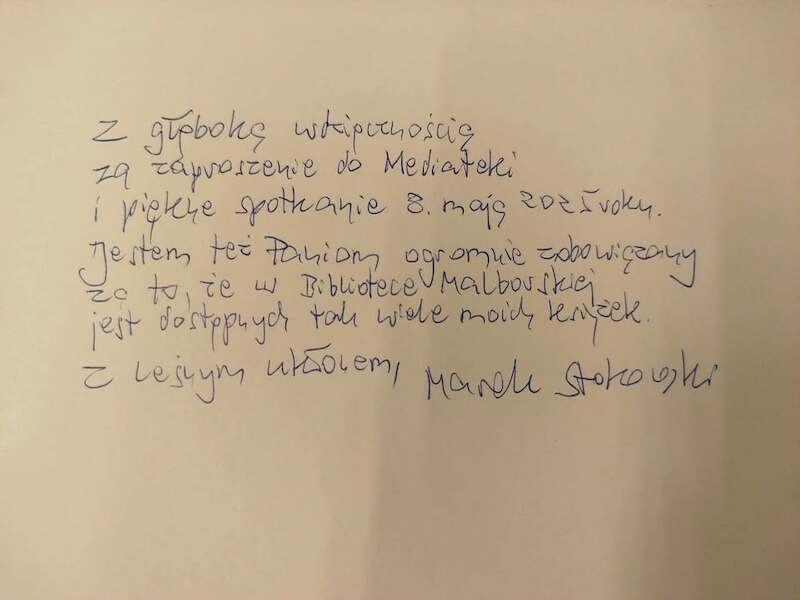 Z głęboką wdzięcznością
za zaproszenie do Mediateki
i piękne spotkanie 8. maja 2025 roku.
Jestem też Paniom ogromnie zobowiązany
za to, że w Bibliotece Malborskiej
jest dostępnych tak wiele moich książek.
Z leśnym ukłonem, Marek Stokowski